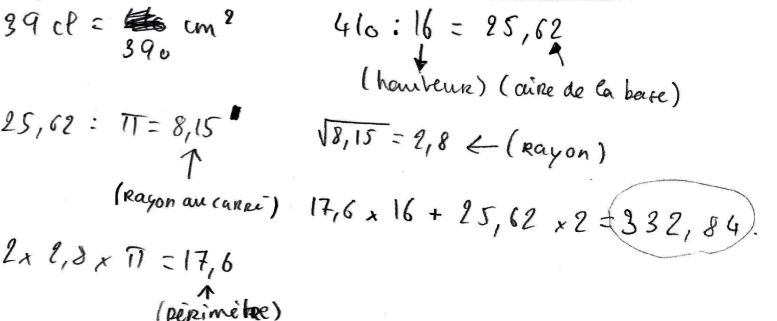 39 cl = 390 cm²
410 : 16 = 25,62
(hauteur) (aire de la base)
25,62 : π = 8,15
(Rayon au carré)
√8,15 = 2,8 ← (Rayon)
17,6 x 16 + 25,62 x 2 = 332,84.
2 x 2,8 x π = 17,6
(périmètre)